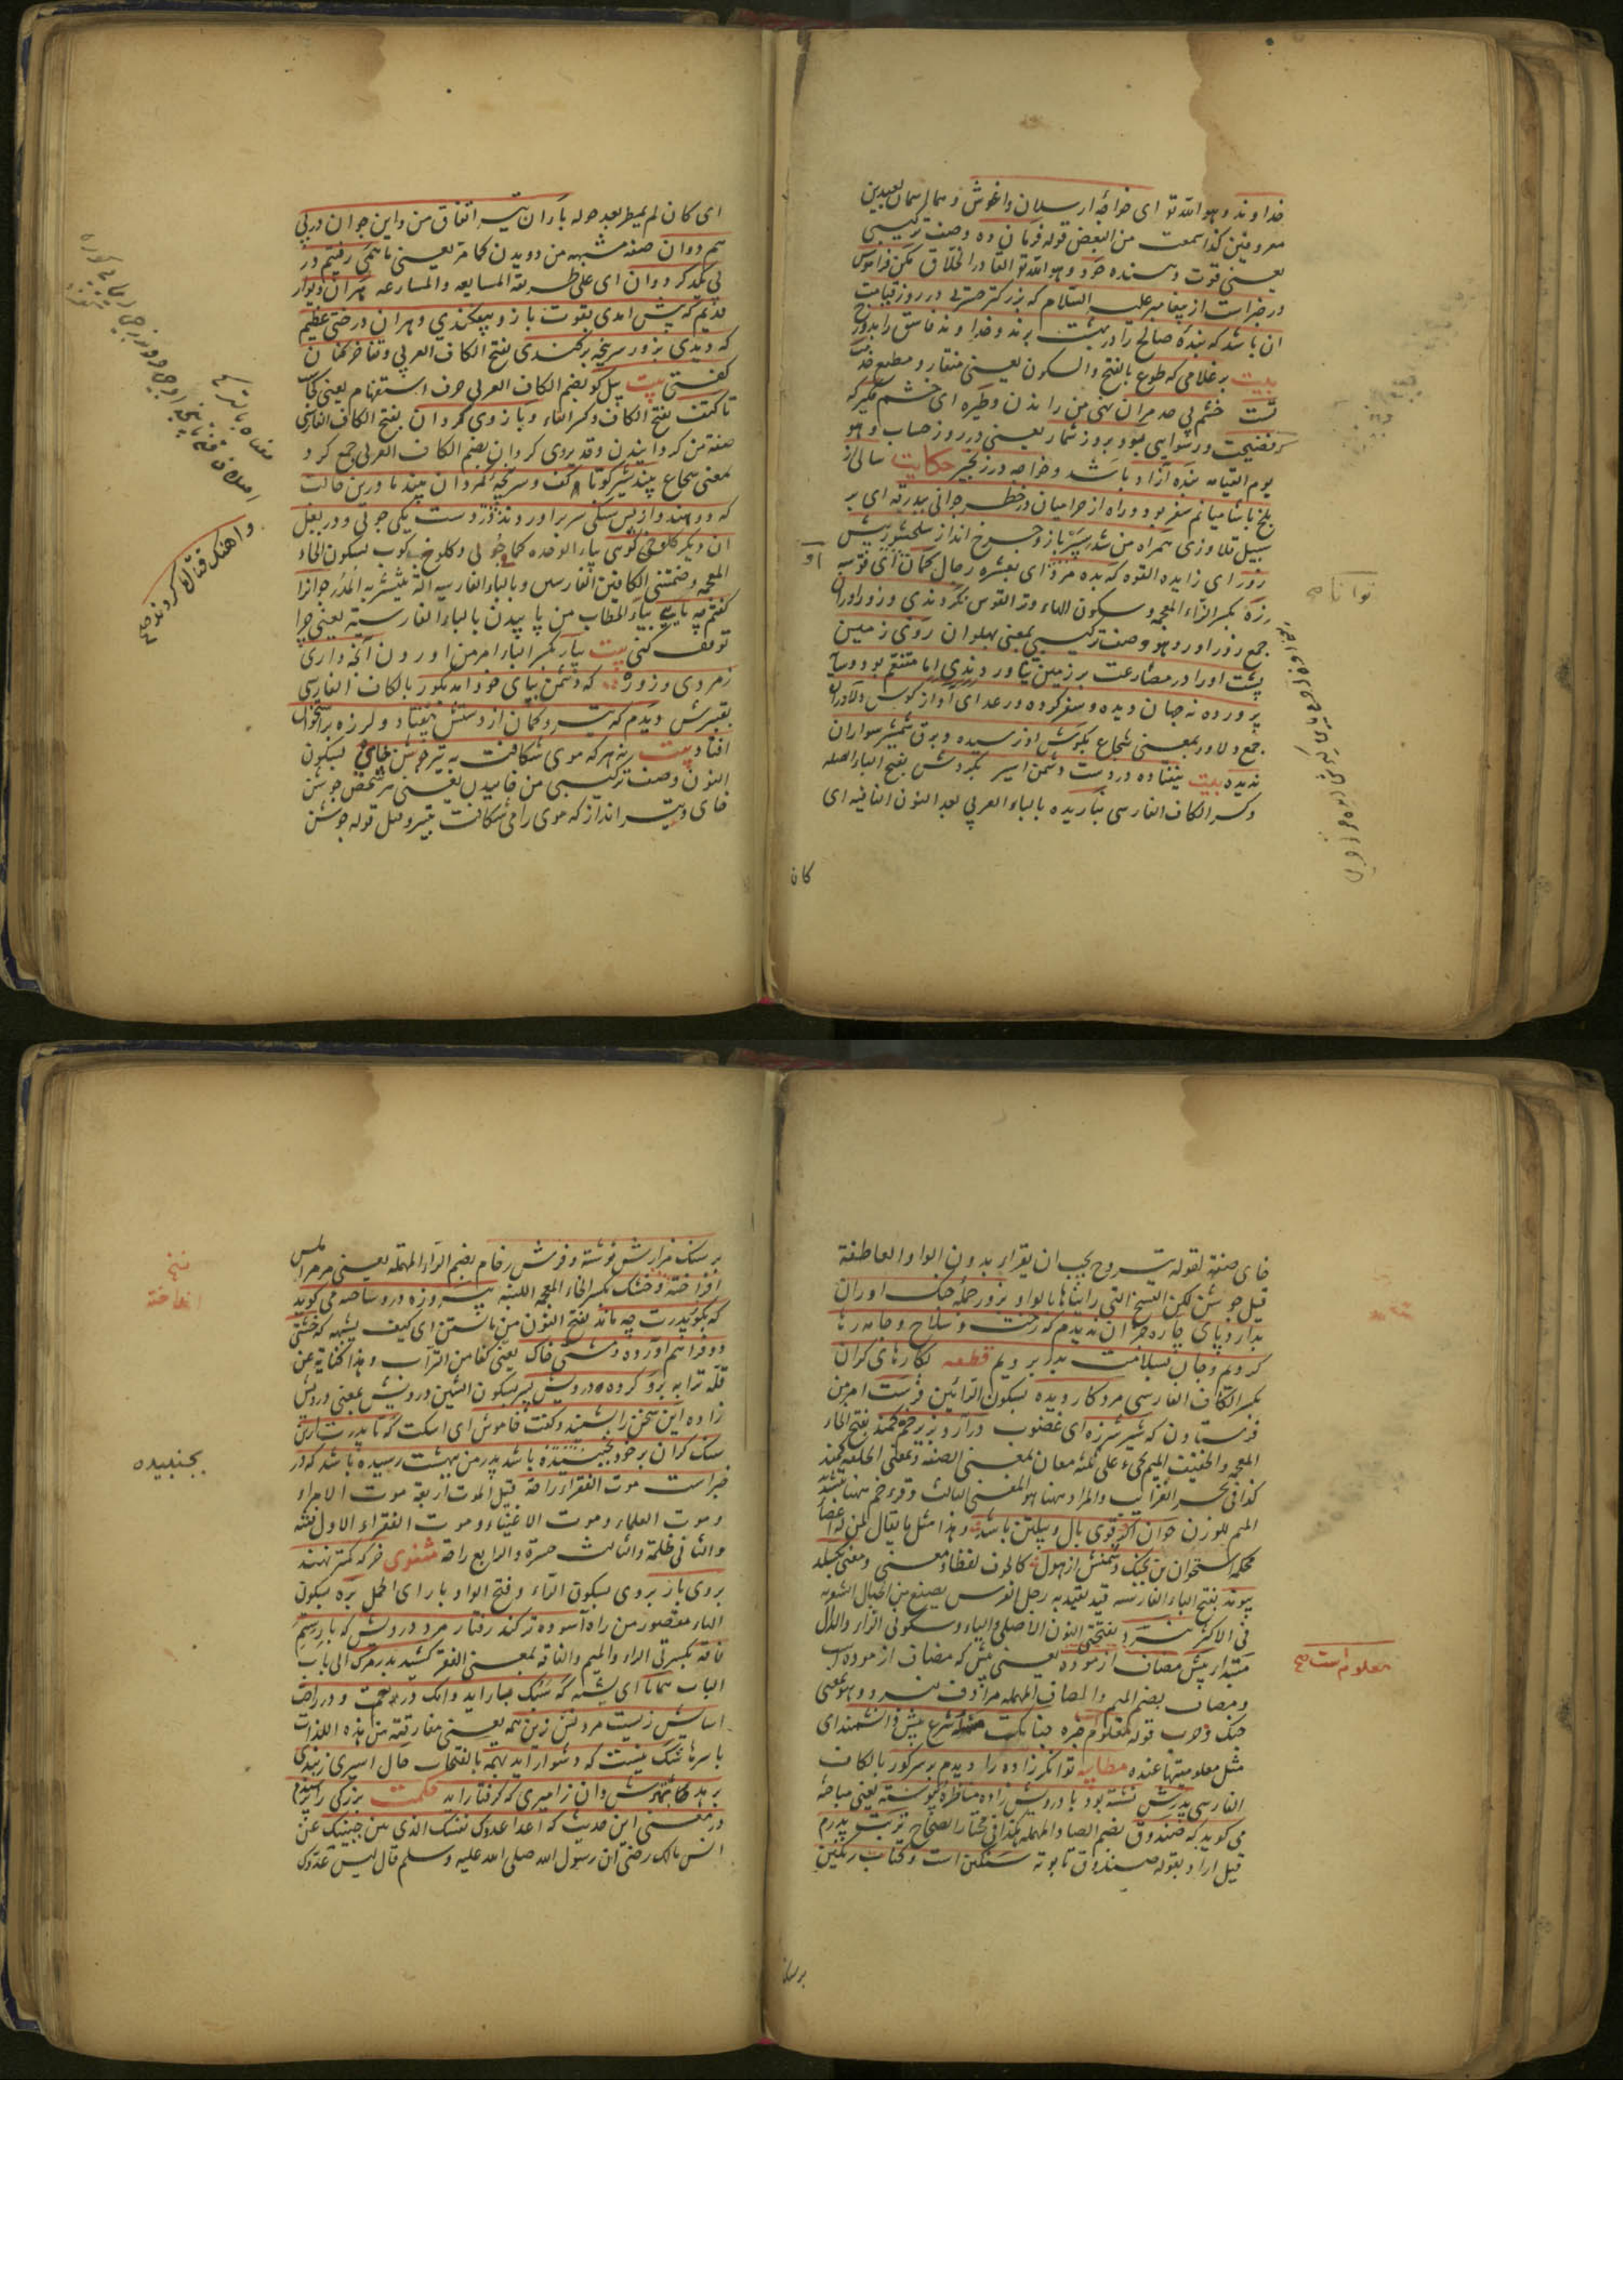 خداوند و هو الله تو ای خواجه ارسلان و اغوش
معروفین کذا سمعت من البعض قوله فرمان ده وصف ترکیبی
یعنی قوت دهنده خود و هو الله تو القادر الخلاق مکن فراموش
در خبراست از پیغامبر علیه السلام که بزرکتر حسرتی در روز قیامت
ان باشد که بنده صالح را در بهشت برند و خداوند فاسق را بدوزخ
بیت بر غلامی که طوع بالفتح والسکون یعنی منقاد و مطیع خدمت
تست خشم بی حد مران نهی من راندن و طیره ای خشم مکیر
که فضیحت و رسوایی بود بروز شمار یعنی در روز حساب و هو
یوم القیامه بنده آزاد باشد و خواجه در زنجیر حکایت سالی از
بلخ با شامیانم سفر بود و راه از حرامیان در خطر جوانی ببدرقه ای بر
سبیل قلاوزی همراه من شد سپر باز و چرخ انداز سلحشور بیش
زور ای زایده القوه که بده مرد ای بعشره رجال کمان ای قوسه
زه بکسر الزاء المعجمه وسکون الهاء وتر القوس نکردندی و زوراوران
جمع زوراور و هو وصف ترکیبی بمعنی پهلوان روی زمین
پشت اورا در مصارعت بر زمین نیاوردندی اما متنعم بود و سایه
پرورده نه جهان دیده و سفر کرده و رعد ای اواز کوس دلاوران
جمع دلاور بمعنی شجاع بکوش او نرسیده و برق شمشیر سواران
ندیده بیت نیفتاده در دست دشمن اسیر بکردش بفتح الباء الصله
و کسر الکاف الفارسی نباریده بالباء العربی بعد النون النافیه ای
کان
توانا صح
ای کان لم یمطر بعد حوله باران تیر اتفاق من و این جوان در پی
هم دوان صفه مشبهه من دویدن کما مر یعنی باهم می رفتیم در
پی یکدکر دوان ای علی طریقة المسابعه والمسارعه هران دیوار
قدیم که پیش امدی بقوت بازو بیفکندی و هران درختی عظیم
که دیدی بزور سرپنجه برکندی بفتح الکاف العربی و تفاخر کنان
کفتی بیت پیل کو بضم الکاف العربی حرف استفهام یعنی کجاست
تا کتف بفتح الکاف و کسر التاء و بازوی کردان بفتح الکاف الفارسی
صفه من کردانیدن و قد یروی کردان بضم الکاف العربی جمع کرد
بمعنی شجاع بیند شیر کو تا کف و سرپنجه کردان بیند ما درین حالت
که دو هندو از پس سنکی سر براوردند در دست یکی چوبی و در بغل
ان دیکر کلوخ کوبی بیاء الوحده کما چوبی و کلوخ کوب بسکون الخاء
المعجمه و ضمتی الکافین الفارسی و بالباء الفارسیه آلة یدق به المدر جوانرا
کفتم چه پایی بیاء الخطاب من پاییدن بالباء الفارسیه یعنی چرا
توقف کنی بیت بیار بکسر الباء امر من اوردن آنچه داری
زمردی و زور که دشمن بپای خود امد بکور بالکاف الفارسی
بقبرش دیدم که تیر و کمان از دستش بیفتاد و لرزه بر استخوان
افتاد بیت نه هر که موی شکافت به تیر جوشن خای بسکون
النون وصف ترکیبی من خاییدن یعنی هر شخص جوشن
خای و تیر انداز که موی را می شکافت بتیر و قیل قوله جوشن
و اهنک قتال کردند صح
خای صفة لقوله تیر و ح یجب ان یقرا تیر بدون الواو العاطفة
قیل جوشن لکن النسخ التی رایناها بالواو بزور حمله جنک اوران
بدارد پای چاره جز ان ندیدم که رخت و سلاح و جامه رها
کردیم و جان بسلامت بدر بردیم قطعه بکارهای کران
بکسر الکاف الفارسی مرد کاردیده بسکون الرائین فرست امر من
فرستادن که شیر شرزه ای غضوب در آرد بزیر خم کمند بفتح الخاء
المعجمه و الخفیف المیم یجیء علی ثلثه معان بمعنی الصفه و بمعنی الحلقه کمند
کذا فی بحر الغرائب والمراد ههنا هو المعنی الثالث و قرء خم ههنا بتشدید
المیم للوزن جوان اکر قوی بال و پیلتن باشد و هذا مثل ما یقال لمن له اعضاء
محکمه استخوان بن بجنک دشمنش از هول کالخوف لفظا و معنی و معنی بکسلد
پیوند بفتح الباء الفارسیه قید تقید به رجل الفرس یصنع من الحبال الشعریه
فی الاکثر نبرد بفتحتی النون الاصلی والباء و سکونی الراء والدال
مبتدا پیش مصاف ازموده یعنی پیش که مضاف ازموده است
و مصاف بضم المیم و الصاف المهمله مرادف نبرد و هو بمعنی
جنک و حرب قوله معلوم خبره چنانکه مسئله شرع پیش دانشمند ای
مثل معلومیتها عنده مطایبه توانکر زاده را دیدم بر سر کور بالکاف
الفارسی پدرش نشسته بود با درویش زاده مناظره پیوسته یعنی مباحثه
می کوید که صندوق بضم الصاد المهمله هکذا فی مختار الصحاح تربت پدرم
قیل اراد بقوله صندوق تابوته سنکین است و کتابه رنکین
معلوم است صح
بر سنک مزارش نوشته و فرش رخام بضم الراء المهمله یعنی مرمر
افراخته و خشت بکسر الخاء المعجمه اللبنه پیروزه درو ساخته می کوید
که بکور پدرت چه ماند بفتح النون من مانستن ای کیف یشبه که خشتی
دو فراهم آورده و مشتی خاک یعنی کفا من التراب و هذا کنایة عن
قلة ترابه برو کرده درویش پسر بسکون الشین درویش بمعنی درویش
زاده این سخن را بشنید و کفت خاموش ای اسکت که تا پدرت ازین
سنک کران بر خود بجنبیده باشد پدر من ببهشت رسیده باشد که در
خبراست موت الفقراء راحة قیل الموت اربعة موت الامراء
و موت العلماء و موت الاغنیاء و موت الفقراء الاول فتنه
والثانی ظلمة والثالث حسرة والرابع راحة مثنوی خر که کمتر نهند
بروی بار بروی بسکون الراء و فتح الواو بار ای الحمل بره بسکون
الهاء مقصور من راه آسوده تر کند رفتار مرد درویش که بار ستم
فاقه بکسرتی الراء والمیم والفاقه بمعنی الفقر کشید بدر مرک ای باب
الباب همانا ای یشبه که سبک بار اید وانک در نعمت و در راحت
اسایش زیست مردنش زین همه یعنی مفارقته من هذه اللذات
باسرها شک نیست که دشوار اید بهمه بالفتحات حال اسیری ز بندی
برهد بهترش دان ز امیری که کرفتار اید حکمت بزرکی را پرسیدم
در معنی این حدیث که اعدا عدوک نفسک الذی بین جنبیک عن
انس بن مالک رضی ان رسول الله صلی الله علیه وسلم قال لیس عدوک
بجنبیده